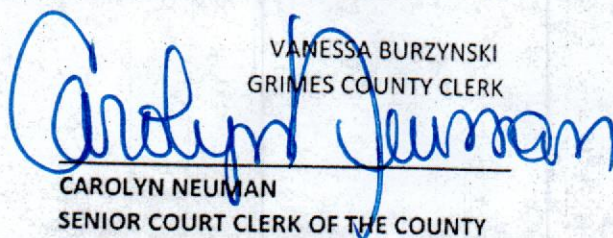 VANESSA BURZYNSKI
GRIMES COUNTY CLERK
Carolyn Neuman
CAROLYN NEUMAN
SENIOR COURT CLERK OF THE COUNTY